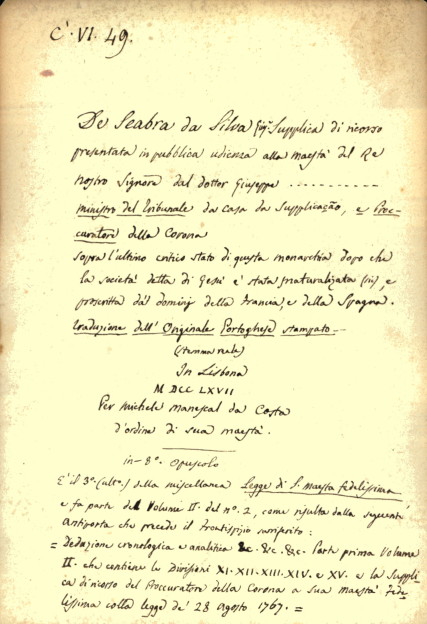 C. VI. 49.
De Seabra da Silva Supplica di ricorso
presentata in pubblica udienza alla maestà del Re
nostro Signore dal dottor Giuseppe ...........
ministro del Tribunale da casa da Supplicação, e Proc-
curatore della Corona
sopra l'ultimo critico stato di questa monarchia dopo che
la società detta di Gesù è stata snaturalizata (sic), e
proscritta da' dominj della Francia, e della Spagna.
Traduzione dell'Originale Portoghese stampato_
(stemma reale)
In Lisbona
M DCC LXVII
Per Michele manescal da Costa
d'ordine di sua maestà.
in-8º. opuscolo
E' il 3º. (ulto.) della miscellanea Legge di S. Maestà fedelissima
e fa parte del Volume II. del nº. 2, come risulta dalla seguente
antiporta che precede il frontispizio surriferito:
= Deduzione cronologica e analitica &c. &c. &c. Parte prima Volume
II. che contiene le Divisioni XI. XII. XIII. XIV. e XV. e la Suppli-
ca di ricorso del Proccuratore della Corona a Sua Maestà Fede-
lissima colla legge de' 28 agosto 1767. =